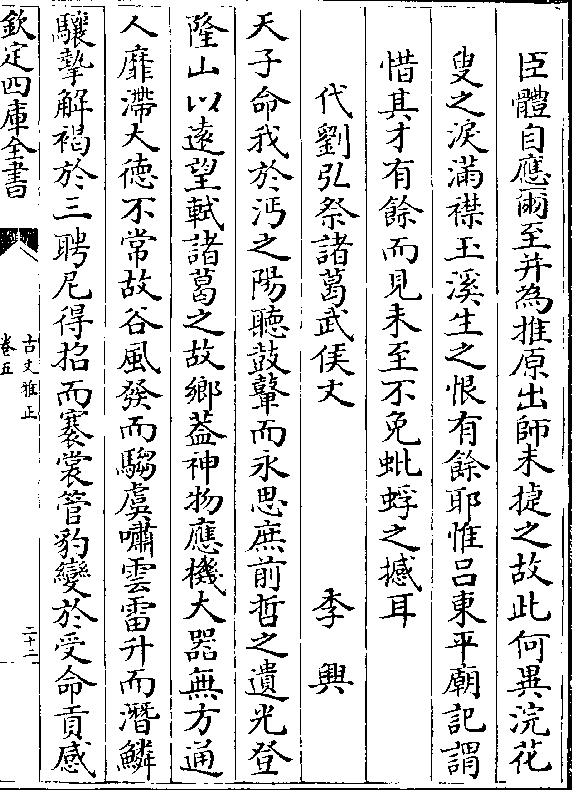 臣體自應爾至并為推原出師未捷之故此何異浣花
叟之淚滿襟玉溪生之恨有餘耶惟吕東平廟記謂
惜其才有餘而見未至不免蚍蜉之撼耳
代劉弘祭諸葛武侯文 李興
天子命我於沔之陽聽鼓鼙而永思庶前哲之遺光登
隆山以遠望軾諸葛之故鄉蓋神物應機大器無方通
人靡滯大德不常故谷風發而騶虞嘯雲雷升而潛鱗
驤摯解褐於三聘尼得招而褰裳管豹變於受命貢感
欽定四庫全書
古文雅正
卷五
二十二